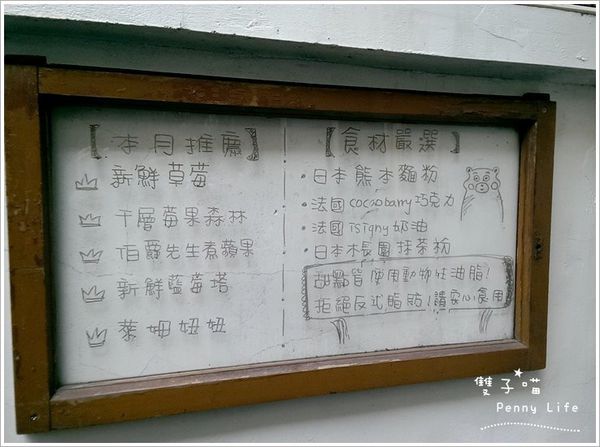 【本月推廌】
新鮮草莓
千層莓果森林
伯爵先生煮蘋果
新鮮藍莓塔
萊姆妞妞
【食材嚴選】
・日本熊本麵粉
・法國cacaobarry巧克力
・法國isigny奶油
・日本木長園抹茶粉
甜點皆使用動物性油脂!
拒絕反式脂肪!請安心食用
雙子喵
Penny Life